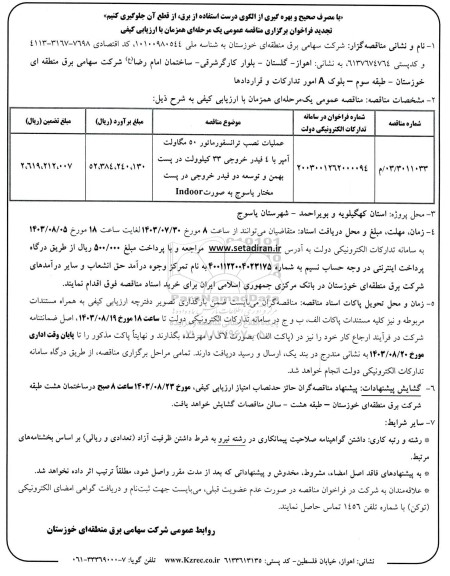 «با مصرف صحیح و بهره گیری از الگوی درست استفاده از برق، از قطع آن جلوگیری کنیم»
تجدید فراخوان برگزاری مناقصه عمومی یک مرحله‌ای همزمان با ارزیابی کیفی
۱- نام و نشانی مناقصه‌گزار: شرکت سهامی برق منطقه‌ای خوزستان به شناسه ملی ۱۰۱۰۰۹۸۰۵۴۴، کد اقتصادی ۷۶۹۸-۳۱۶۷-۴۱۱۳
و کدپستی ۶۱۳۷۶۷۴۷۶۴، به نشانی: اهواز- گلستان - بلوار کارگرشرقی- ساختمان امام رضا(ع) شرکت سهامی برق منطقه ای
خوزستان - طبقه سوم – بلوک A امور تدارکات و قراردادها
۲- مشخصات مناقصه: مناقصه عمومی یک‌مرحله‌ای همزمان با ارزیابی کیفی به شرح ذیل:
شماره مناقصه | شماره فراخوان در سامانه تدارکات الکترونیکی دولت | موضوع مناقصه | مبلغ برآورد (ریال) | مبلغ تضمین (ریال)
۰۳/۳۰۱۱۰۳۳/م | ۲۰۰۳۰۰۱۲۶۲۰۰۰۰۹۴ | عملیات نصب ترانسفورماتور ۵۰ مگاولت آمپر با ۴ فیدر خروجی ۳۳ کیلوولت در پست بهمن و توسعه دو فیدر خروجی در پست مختار یاسوج به صورت Indoor | ۵۲,۳۸۴,۲۴۰,۱۳۰ | ۲,۶۱۹,۲۱۲,۰۰۷
۳- محل پروژه: استان کهگیلویه و بویراحمد - شهرستان یاسوج
۴- زمان، مهلت، مبلغ و محل دریافت اسناد: متقاضیان می‌توانند از ساعت ۸ مورخ ۱۴۰۳/۰۷/۳۰ لغایت ساعت ۱۸ مورخ ۱۴۰۳/۰۸/۰۵
به سامانه تدارکات الکترونیکی دولت به آدرس www.setadiran.ir مراجعه و با پرداخت مبلغ ۵۰۰/۰۰۰ ریال از طریق درگاه
پرداخت اینترنتی در وجه حساب نسیم به شماره ۴۰۰۱۱۲۲۰۰۴۰۲۳۱۷۵ به نام تمرکز وجوه درآمد حق انشعاب و سایر درآمدهای
شرکت برق منطقه‌ای خوزستان در بانک مرکزی جمهوری اسلامی ایران برای خرید اسناد مناقصه فوق اقدام نمایند.
۵- زمان و محل تحویل پاکات اسناد مناقصه: مناقصه‌گران می‌بایست ضمن بارگذاری تصویر دفترچه ارزیابی کیفی به همراه مستندات
مربوطه و نیز کلیه مستندات پاکات الف، ب و ج در سامانه تدارکات الکترونیکی دولت تا ساعت ۱۸ مورخ ۱۴۰۳/۰۸/۱۹، اصل ضمانتنامه
شرکت در فرآیند ارجاع کار خود را نیز در (پاکت الف) بصورت لاک و مهرشده بگذارند و نهایتاً پاکت مذکور را تا پایان وقت اداری
مورخ ۱۴۰۳/۰۸/۲۰ به نشانی مندرج در بند یک، ارسال و رسید دریافت دارند. تمامی مراحل برگزاری مناقصه، از طریق درگاه سامانه
تدارکات الکترونیکی دولت انجام خواهد شد.
۶- گشایش پیشنهادات: پیشنهاد مناقصه‌گران حائز حدنصاب امتیاز ارزیابی کیفی، مورخ ۱۴۰۳/۰۸/۲۳ ساعت ۸ صبح درساختمان هشت طبقه
شرکت برق منطقه‌ای خوزستان – طبقه هشت - سالن مناقصات گشایش خواهد یافت.
۷- سایر شرایط:
* رشته و رتبه کاری: داشتن گواهینامه صلاحیت پیمانکاری در رشته نیرو به شرط داشتن ظرفیت آزاد (تعدادی و ریالی) بر اساس بخشنامه‌های
مرتبط.
* به پیشنهادهای فاقد اصل امضاء، مشروط، مخدوش و پیشنهاداتی که بعد از مدت مقرر واصل شود، مطلقاً ترتیب اثر داده نخواهد شد.
* علاقه‌مندان به شرکت در فراخوان مناقصه در صورت عدم عضویت قبلی، می‌بایست جهت ثبت‌نام و دریافت گواهی امضای الکترونیکی
(توکن) با شماره تلفن ۱۴۵۶ تماس حاصل نمایند.
روابط عمومی شرکت سهامی برق منطقه‌ای خوزستان
نشانی: اهواز، خیابان فلسطین- کد پستی: ۶۱۳۳۶۱۳۱۳۵ www.Kzrec.co.ir تلفن گویا: ۷-۰۶۱-۳۳۳۶۹۰۰۰